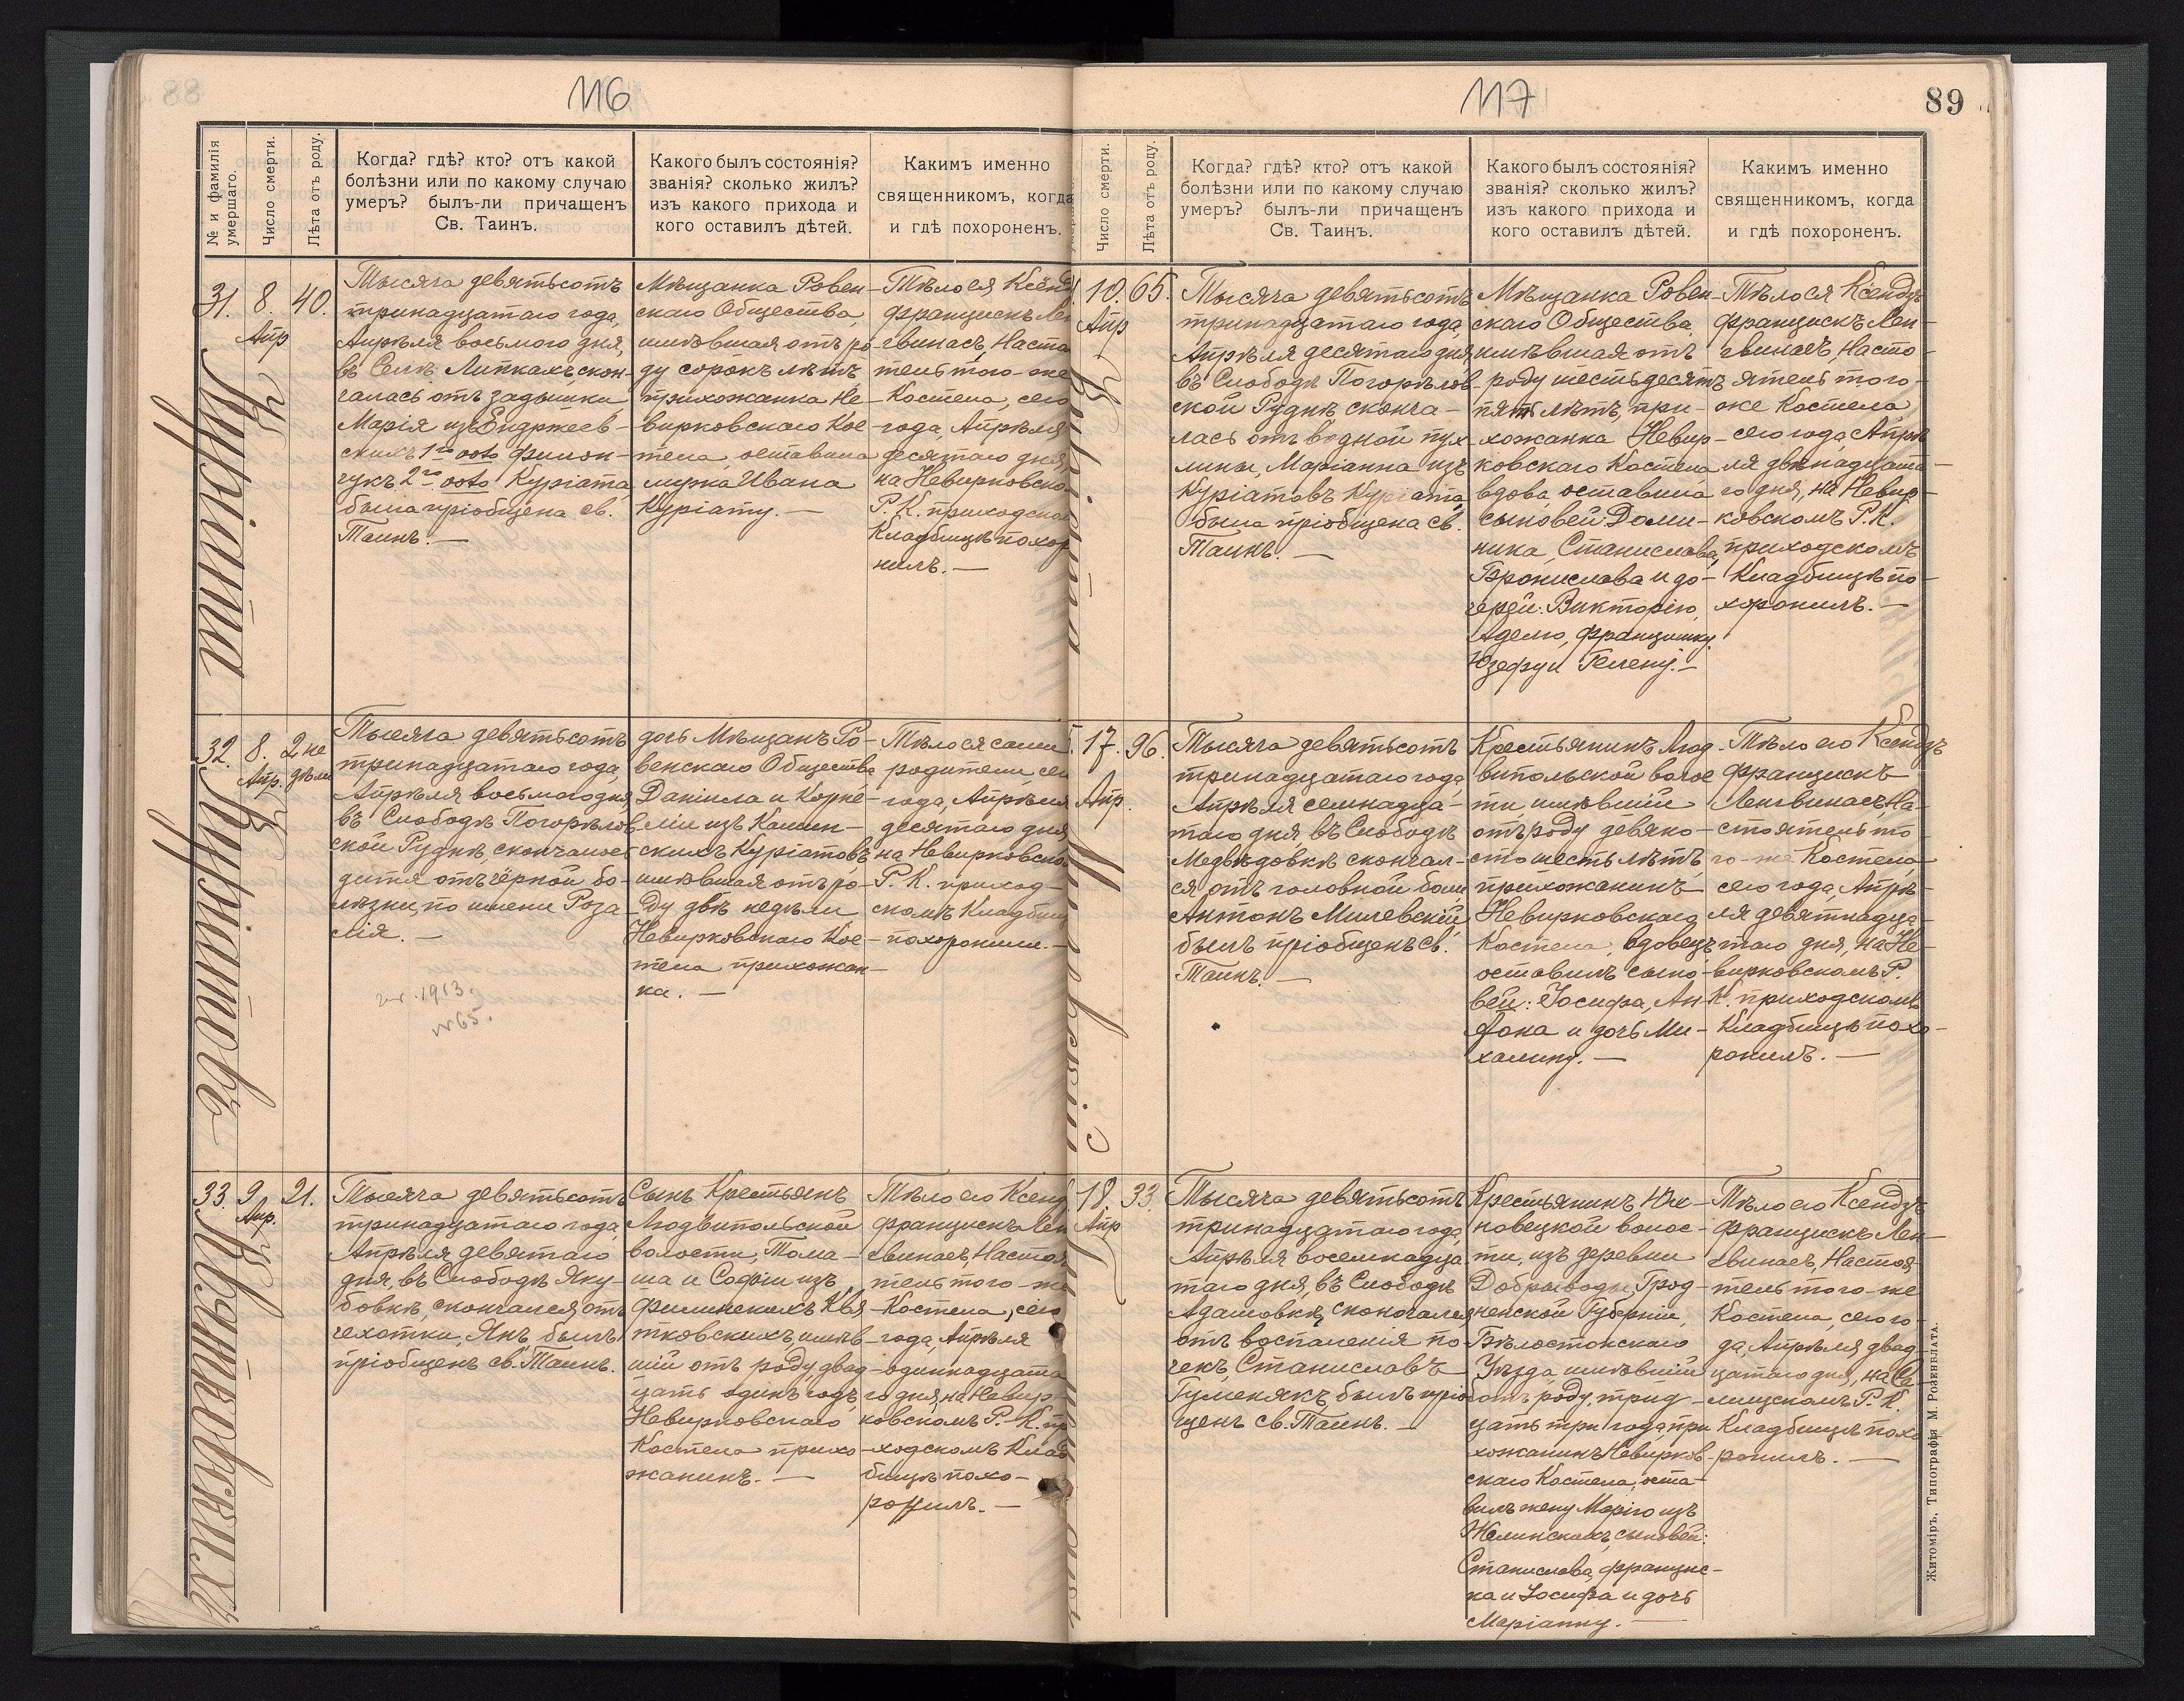 116
№ и фамилія умершаго.
Число смерти.
Лѣта отъ роду.
Когда? гдѣ? кто? отъ какой
болѣзни или по какому случаю
умеръ? былъ-ли причащенъ
Св. Таинъ.
Какого былъ состоянія?
званія? сколько жилъ?
изъ какого прихода и
кого оставилъ дѣтей.
Какимъ именно
священникомъ, когда
и гдѣ похороненъ.
31.
Куріата
8.
Апр
40.
Тысяча девятьсотъ
тринадцатаго года,
Апрѣля восьмого дня,
въ Селѣ Липкахъ скон-
чалась отъ задышки
Марія изъ Ендржеев-
скихъ 1го voto Филон-
чукъ 2го voto Куріата
была пріобщена св.
Таинъ. —
Мѣщанка Ровен-
скаго Общества,
имѣвшая отъ ро-
ду сорокъ лѣтъ
прихожанка Не-
вирковскаго Кос-
тела, оставила
мужа Ивана
Куріату. —
Тѣло ея Ксенд
Францискъ Лен
гвинасъ, Насто
тель того-же
Костела, сего
года, Апрѣля
десятаго дня,
на Невирковско
Р. К. приходско
Кладбищѣ похор
нилъ. —
32.
Куріатовъ
8.
Апр.
2 не
дѣли
Тысяча девятьсотъ
тринадцатаго года,
Апрѣля восьмого дня,
въ Слободѣ Погорѣлов
ской Руднѣ, скончалось
дитя отъ чёрной бо-
лѣзни, по имени Роза
лія. —
1913.
№65.
дочь Мѣщанъ Ро-
венскаго Общества
Даніила и Корне-
ліи изъ Камин-
скихъ Куріатовъ
имѣвшая отъ ро-
ду двѣ недѣли
Невирковскаго Кос-
тела прихожан-
ка. —
Тѣло ея сами
родители, сег
года, Апрѣля
десятаго дня
на Невирковско
Р. К. приход-
скомъ Кладбищ
похоронили. —
33
Квятковскихъ
9
Апр.
21.
Тысяча девятьсотъ
тринадцатаго года,
Апрѣля девятаго
дня, въ Слободѣ Яку-
бовкѣ, скончался отъ
чехотки, Янъ, былъ
пріобщенъ св. Таинъ.
Сынъ Крестьянъ
Людвипольской
волости, Тома-
ша и Софіи изъ
Филинскихъ Квя
тковскихъ, имѣв-
шій отъ роду, двад
цать одинъ годъ,
Невирковскаго
Костела прихо
жанинъ. —
Тѣло его Ксенд
Францискъ Лен
гвинасъ, Настоя
тель того-же
Костела, сего
года, Апрѣля
одиннадцата
го дня, на Невир-
ковскомъ Р. К. пр
ходскомъ Клад
бищѣ похо-
ронилъ. —
117
89
Число смерти.
Лѣта отъ роду.
Когда? гдѣ? кто? отъ какой
болѣзни или по какому случаю
умеръ? былъ-ли причащенъ
Св. Таинъ.
Какого былъ состоянія?
званія? сколько жилъ?
изъ какого прихода и
кого оставилъ дѣтей.
Какимъ именно
священникомъ, когда
и гдѣ похороненъ.
10.
Апр
65.
Тысяча девятьсотъ
тринадцатаго года,
Апрѣля десятаго дня,
въ Слободѣ Погорѣлов-
ской Руднѣ сконча-
лась отъ водной пух
лины, Маріанна изъ
Куріатовъ Куріата,
была пріобщена св.
Таинъ. —
Мѣщанка Ровен-
скаго Общества,
имѣвшая отъ
роду шестьдесятъ
пять лѣтъ, при-
хожанка Невир-
ковскаго Костела
вдова, оставила
сыновей: Доми-
ника, Станислава,
Бронислава и до-
черей: Викторію,
Аделю, Францишку,
Юзефу и Гелену. —
Тѣло ея Ксендзъ
Францискъ Лен-
гвинасъ, Насто-
ятель того-
же Костела,
сего года, Апрѣ
ля двѣнадцата-
го дня, на Невир-
ковскомъ Р. К.
приходскомъ
Кладбищѣ по-
хоронилъ. —
17.
Апр.
96.
Тысяча девятьсотъ
тринадцатаго года,
Апрѣля семнадца-
таго дня, въ Слободѣ
Медвѣдовкѣ скончал-
ся отъ головной боли,
Антонъ Милевскій,
былъ пріобщенъ св.
Таинъ. —
Крестьянинъ Люд-
випольской волос
ти, имѣвшій
отъ роду девяно-
сто шесть лѣтъ,
прихожанинъ
Невирковскаго
Костела, вдовецъ
оставилъ сыно-
вей: Іосифа, Ан-
тона и дочь Ми-
халину. —
Тѣло его Ксендзъ
Францискъ
Ленгвинасъ, На-
стоятель то-
го-же Костела,
сего года, Апрѣ-
ля девятнадца-
таго дня, на Не-
вирковскомъ Р.
К. приходскомъ
Кладбищѣ похо-
ронилъ. —
18.
Апр
33.
Тысяча девятьсотъ
тринадцатаго года,
Апрѣля восемнадца
таго дня, въ Слободѣ
Адамовкѣ, скончался
отъ воспаленія по-
чекъ, Станиславъ
Гуменякъ, былъ пріоб
щенъ св. Таинъ. —
Крестьянинъ Юх-
новецкой волос-
ти, изъ деревни
Добрыводы, Грод-
ненской Губерніи,
Бѣлостокскаго
Уѣзда, имѣвшій
отъ роду, трид-
цать три года, при
хожанинъ Невирков-
скаго Костела, оста-
вилъ жену Марію изъ
Желинскихъ, сыновей:
Станислава, Францис-
ка и Іосифа и дочь
Маріанну. —
Тѣло его Ксендзъ
Францискъ Лен-
гвинасъ, Настоя-
тель того-же
Костела, сего го-
да, Апрѣля двад-
цатаго дня, на Се
лищскомъ Р. К.
Кладбищѣ похо
ронилъ. —
Житоміръ, Типографія М. Розенблата.